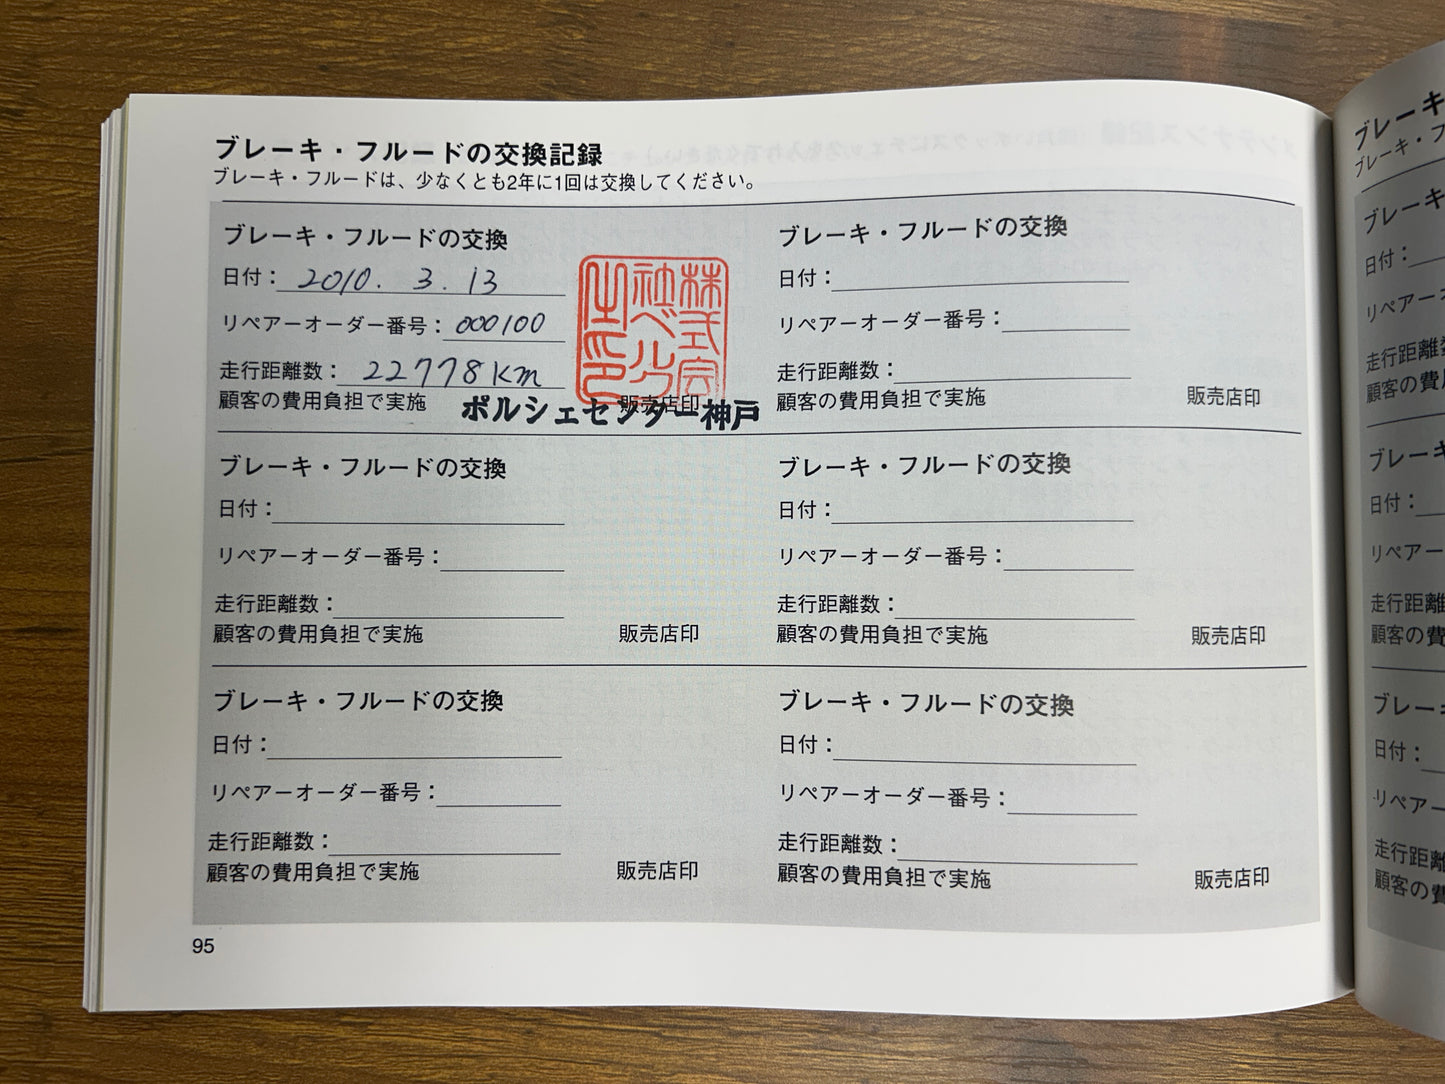 ブレーキ・フルードの交換記録
ブレーキ・フルードは、少なくとも2年に1回は交換してください。
ブレーキ・フルードの交換
日付： 2010. 3. 13
リペアーオーダー番号： 000100
走行距離数： 22778km
顧客の費用負担で実施
販売店印
株式会社
ポルシェセンター神戸
ブレーキ・フルードの交換
日付：
リペアーオーダー番号：
走行距離数：
顧客の費用負担で実施
販売店印
ブレーキ・フルードの交換
日付：
リペアーオーダー番号：
走行距離数：
顧客の費用負担で実施
販売店印
ブレーキ・フルードの交換
日付：
リペアーオーダー番号：
走行距離数：
顧客の費用負担で実施
販売店印
ブレーキ・フルードの交換
日付：
リペアーオーダー番号：
走行距離数：
顧客の費用負担で実施
販売店印
ブレーキ・フルードの交換
日付：
リペアーオーダー番号：
走行距離数：
顧客の費用負担で実施
販売店印
95
ブレーキ
ブレーキ・フ
ブレーキ
日付：
リペアーオ
走行距離
顧客の費用
ブレーキ
日付：
リペアー
走行距離
顧客の費
ブレーキ
日付：
リペアー
走行距離
顧客の費